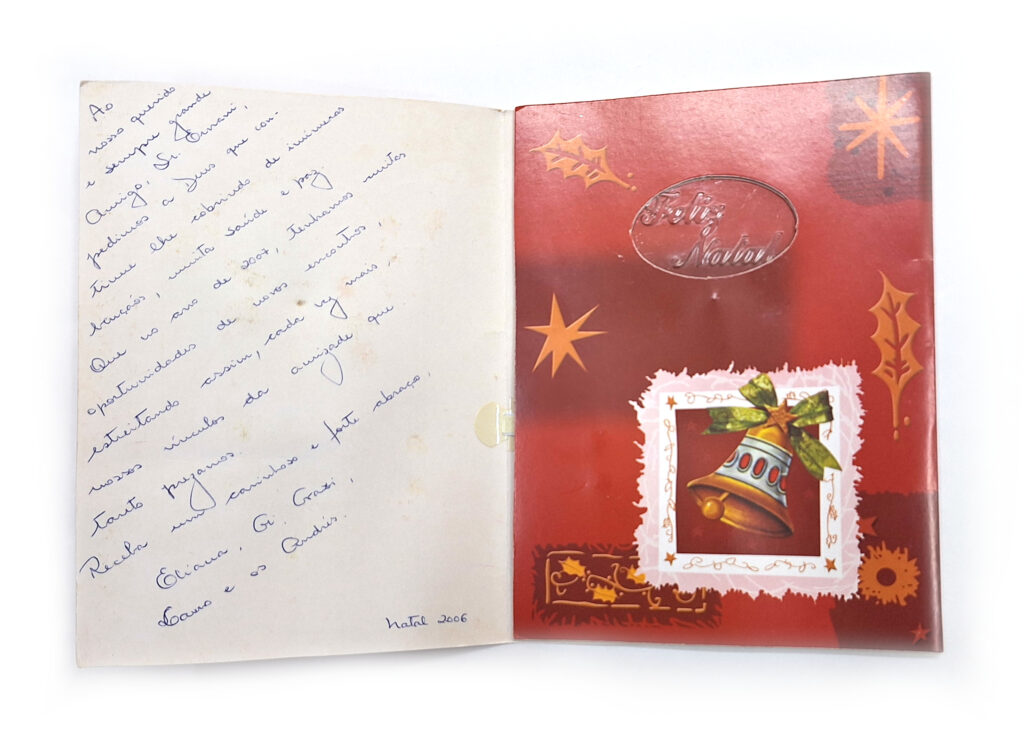 Ao
nosso querido
e sempre grande
Amigo, Sr. Ernani,
pedimos a Deus que con-
tinue lhe cobrindo de inúmeras
bençãos, muita saúde e paz
Que no ano de 2007, tenhamos muitas
oportunidades de novos encontros,
estreitando assim, cada vez mais,
nossos vínculos da amizade que
tanto prezamos.
Receba um carinhoso e forte abraço,
Eliana, Gi, Grazi,
Lauro e os Andrés.
Natal 2006
Feliz
Natal